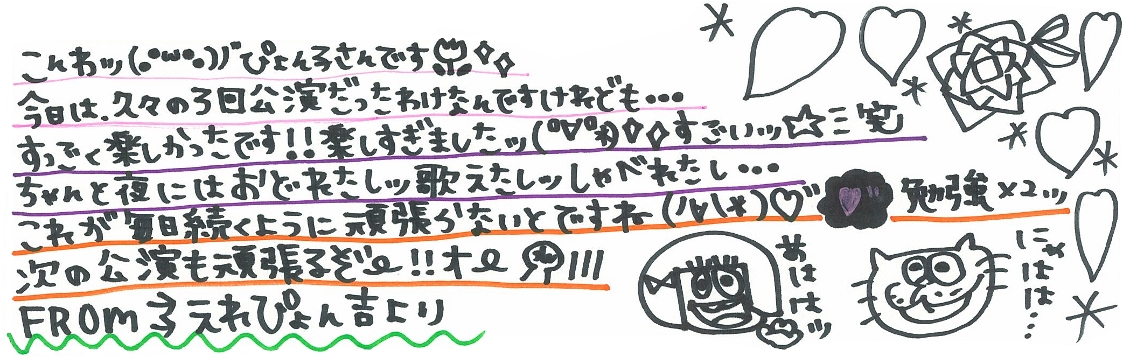 こんわッ(•ω•)ﾉ゛ぴょんろさんです
今日は、久々の3回公演だったわけなんですけれども…
すっごく楽しかったです!!楽しすぎましたッ(°∀°*)すごいッ☆ミ笑
ちゃんと夜にはおどれたしッ歌えたしッしゃべれたし…
これが毎日続くように頑張らないとですね(/∀\*)♡" 勉強×2ッ
次の公演も頑張るぞー!!オー
FROM→えれぴょん吉より
あはは ッ
にゃはは…